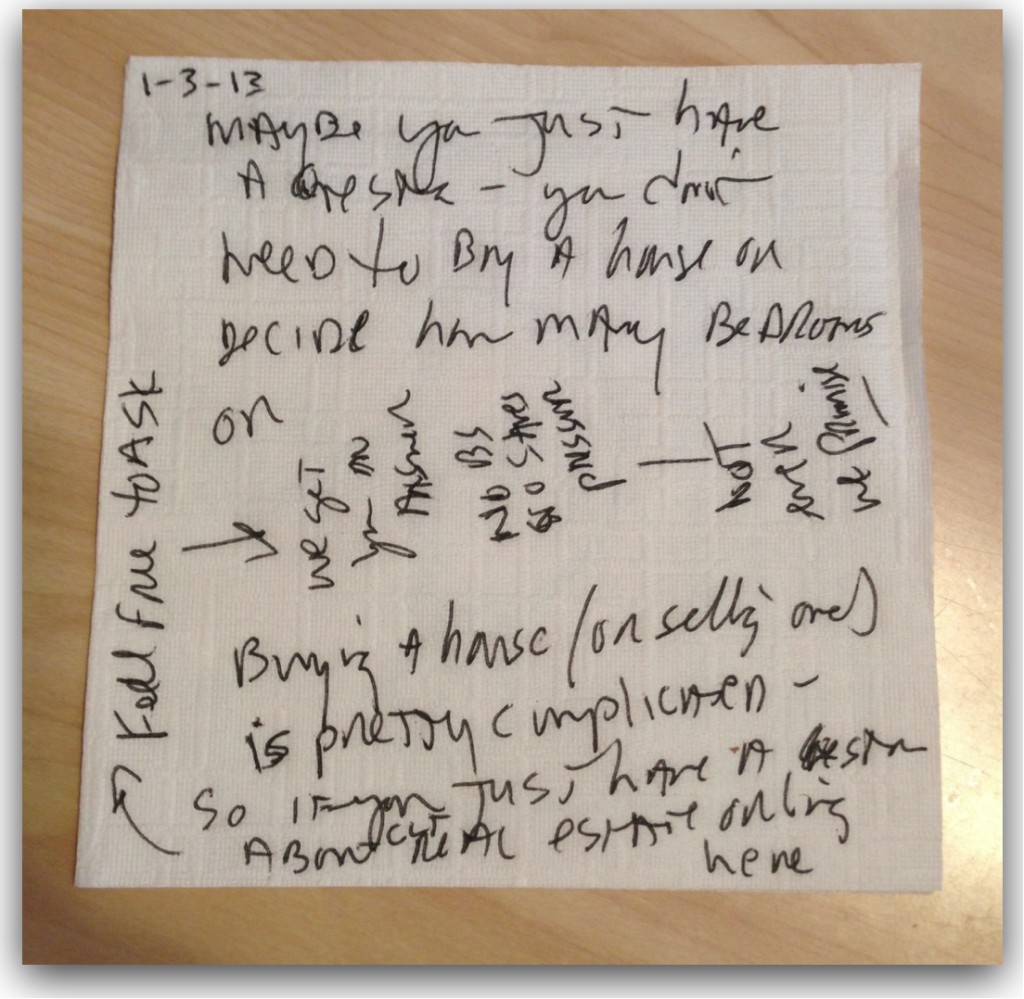 1-3-13
MAYBE you JUST have
A question - you don't
NEED to BUY A house or
DECIDE how MANY BEDROOMS
or
we get
you an
Answer
NO BS
NO SALES
Pressure
— NOT
even
we promise
Buying A house (or selling one)
is pretty complicated -
So if you JUST have A question
About CT REAL ESTATE or living
here
Feel Free to ASK